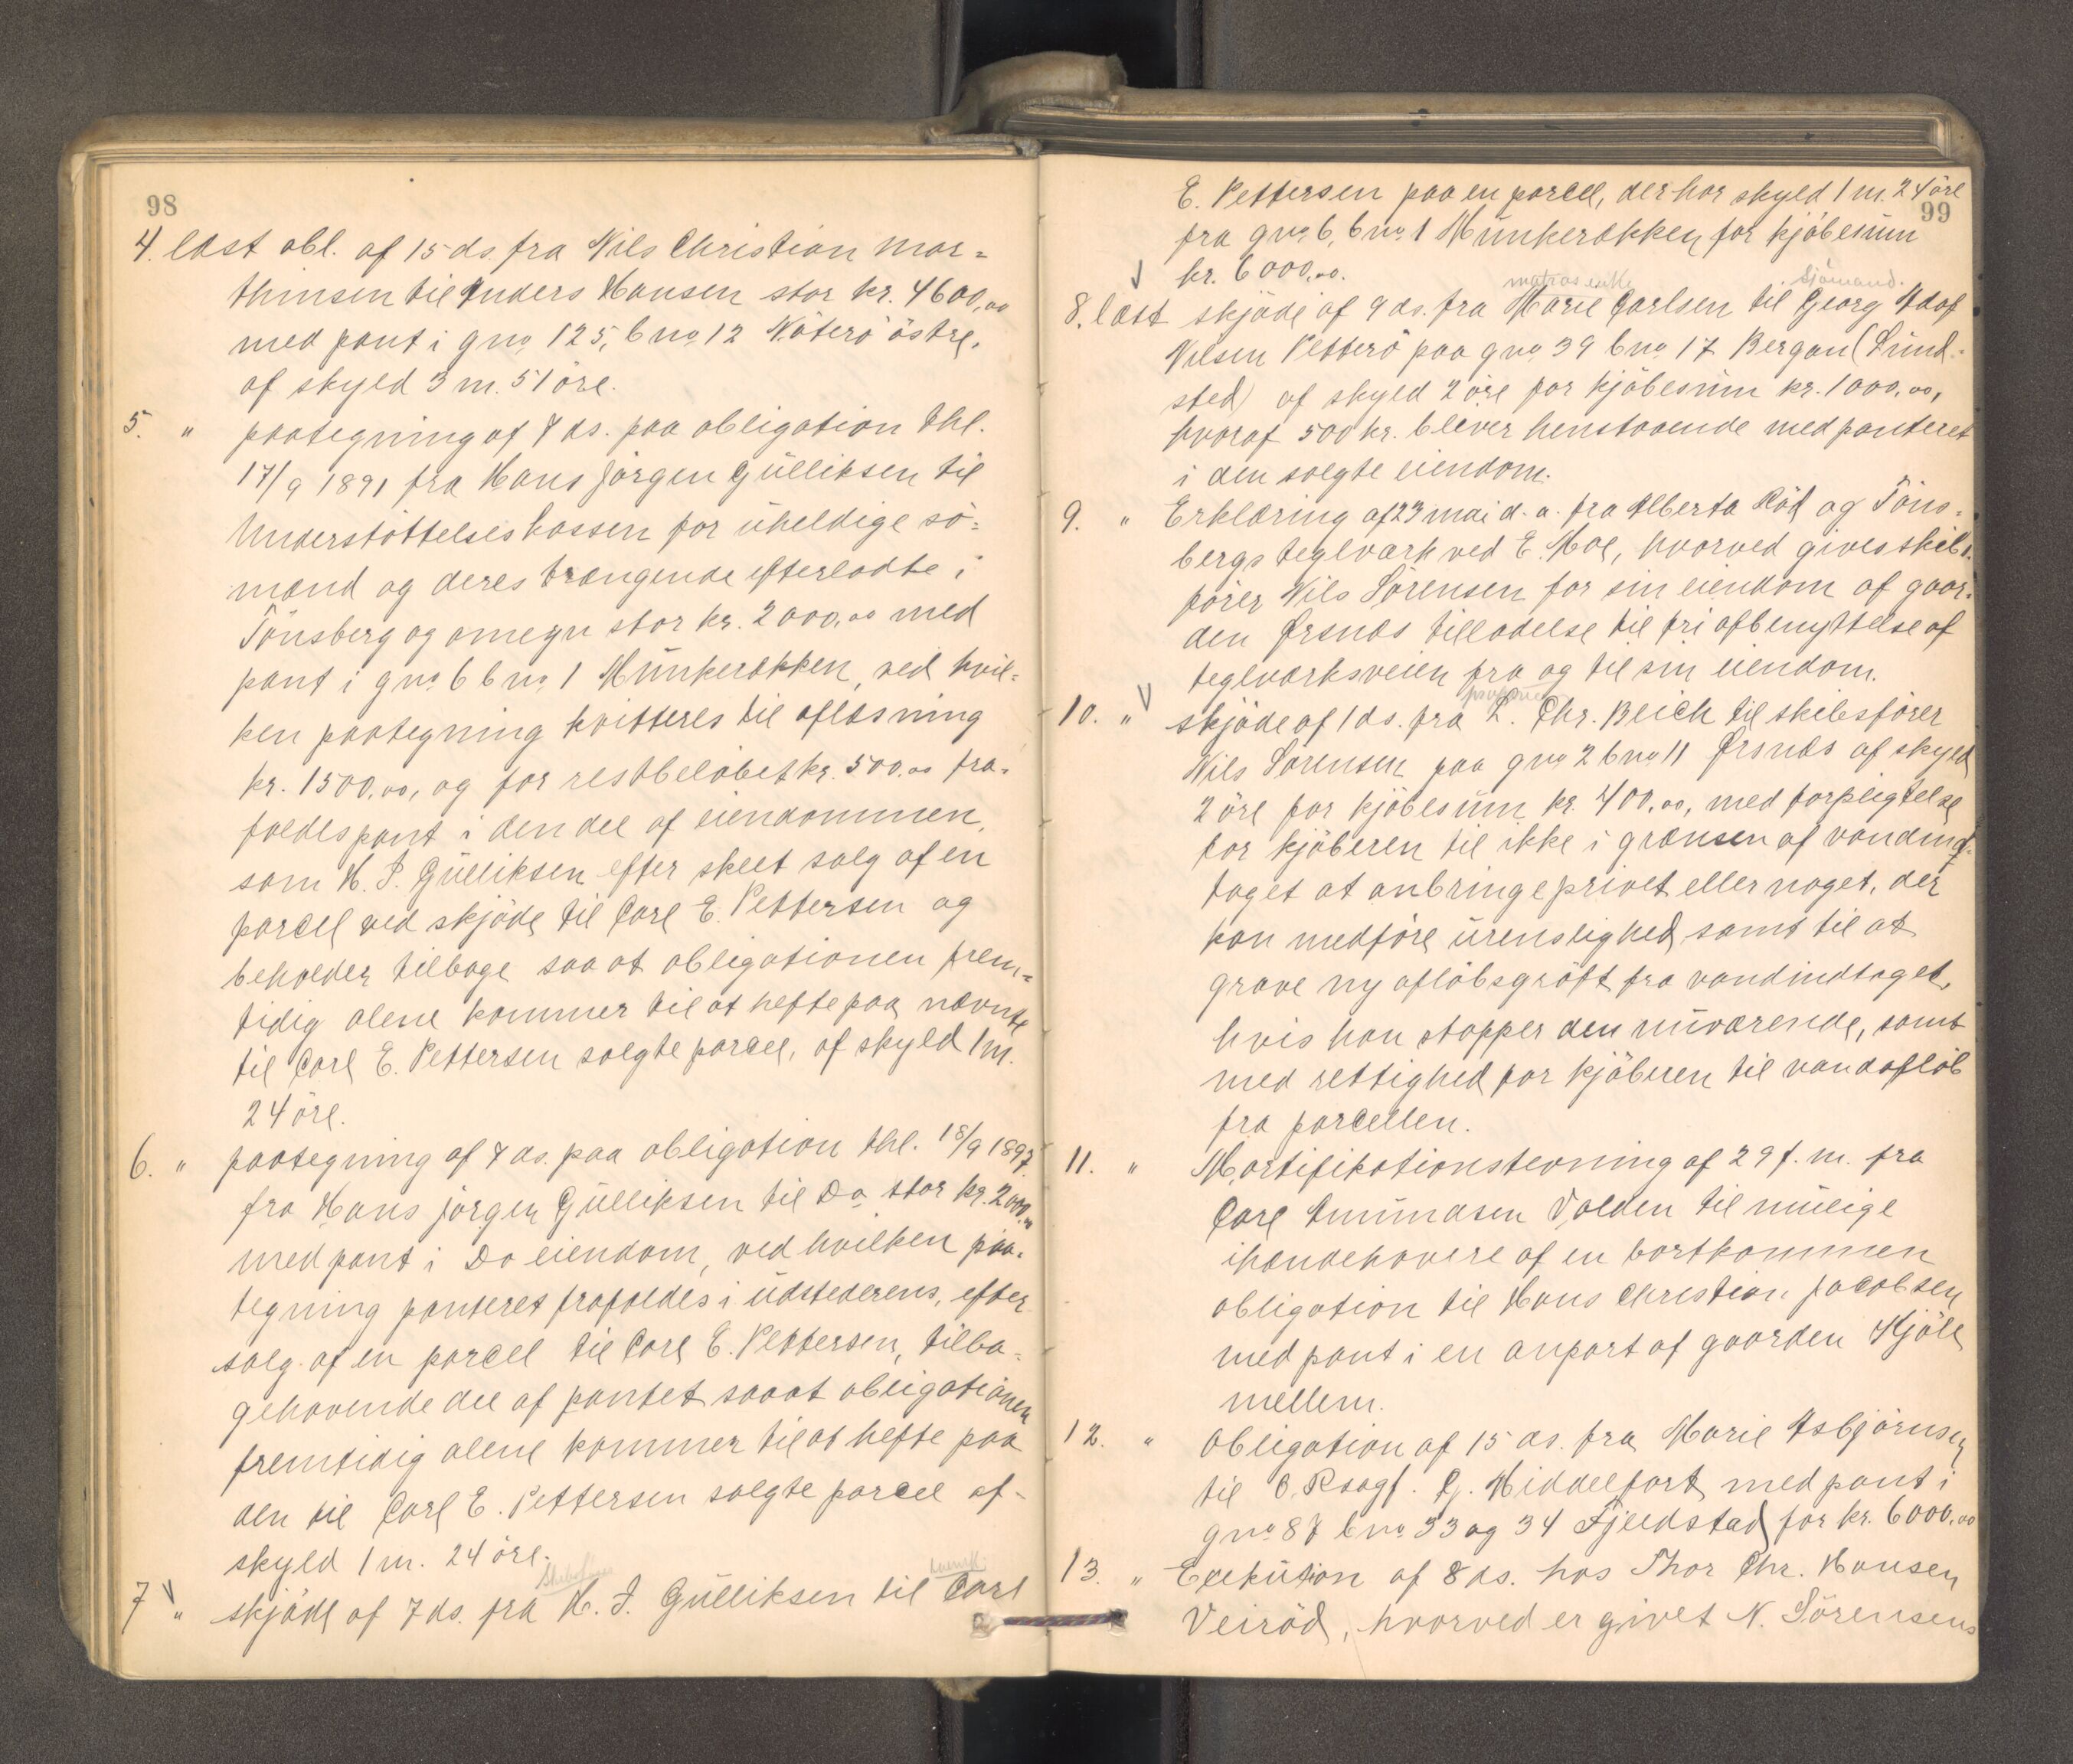 98
4. læst obl. af 15 ds. fra Nils Christian Mar-
thinsen til Anders Hansen stor kr. 4600,00
med pant i gno 125, bno 12 Nøterø østre,
af skyld 3 m. 51 øre.
5. " paategning af 7 ds. paa obligation thl.
17/9 1891 fra Hans Jørgen Gulliksen til
Understøttelseskassen for uheldige sø-
mænd og deres trængende efterladte i
Tønsberg og omegn stor kr. 2000,00 med
pant i gno 6 bno 1 Munkerækken, ved hvil-
ken paategning kvitteres til aflæsning
kr. 1500,00, og for restbeløbet kr. 500,00 fra-
faldes pant i den del af eiendommen,
som H. J. Gulliksen efter skeet salg af en
parcel ved skjøde til Carl E. Pettersen og
beholder tilbage saa at obligationen frem-
tidig alene kommer til at hefte paa nævnte
til Carl E. Pettersen solgte parcel, af skyld 1 m.
24 øre.
6. " paategning af 7 ds. paa obligation thl. 18/9 1897
fra Hans Jørgen Gulliksen til Do stor kr. 2000,00
med pant i Do eiendom, ved hvilken paa-
tegning panteret frafaldes i udstederens, efter
salg af en parcel til Carl E. Pettersen, tilba-
gehavende del af pantet saaat obligationen
fremtidig alene kommer til at hefte paa
den til Carl E. Pettersen solgte parcel af
skyld 1 m. 24 øre.
7 " skjøde af 7 ds. fra H. J. Gulliksen til Carl
99
E. Pettersen paa en parcel, der har skyld 1 m. 24 øre
fra gno 6, bno 1 Munkerækken for kjøbesum
kr. 6000,00.
Sjømand.
8. læst skjøde af 9 ds. fra Marie Carlsen til Georg Adof
Nilsen Petterø paa gno 39 bno 17 Bergan (Lund-
sted) af skyld 2 øre for kjøbesum kr. 1000,00,
hvoraf 500 kr. bliver henstaaende med panteret
i den solgte eiendom.
9. " Erklæring af 23 mai d. a. fra Alberta Rød og Tøns-
bergs teglværk ved E. Moe, hvorved gives skibs-
fører Nils Sørensen for sin eiendom af gaar-
den Ørsnæs tilladelse til fri afbenyttelse af
teglværksveien fra og til sin eiendom.
10. " skjøde af 1 ds. fra L. Chr. Bleich til skibsfører
Nils Sørensen paa gno 2 bno 11 Ørsnæs af skyld
2 øre for kjøbesum kr. 400,00, med forpligtelse
for kjøberen til ikke i grænsen af vandind-
taget at anbringe privet eller noget, der
kan medføre urenslighed samt til at
grave ny afløbsgrøft fra vandindtaget,
hvis han stopper den nuværende, samt
med rettighed for kjøberen til vandafløb
fra parcellen.
11. " Mortifikationstevning af 29 f. m. fra
Carl Amundsen Valden til mulige
ihændehavere af en bortkommen
obligation til Hans Christian Jacobsen
med pant i en anpart af gaarden Kjøle
mellem.
12. " Obligation af 15 ds. fra Marie Asbjørnsen
til O. Rsagf. C. Middelfart med pant i
gno 87 bno 33 og 34 Fjeldstad for kr. 6000,00
13. " Exekution af 8 ds. hos Thor Chr. Hansen
Veirød, hvorved er givet N. Sørensens